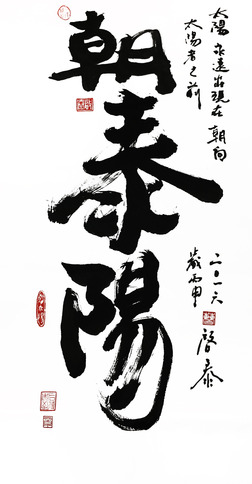 太陽 永遠出現在 朝向
太陽者之前
二〇一六
歲丙申
啓泰
朝泰陽